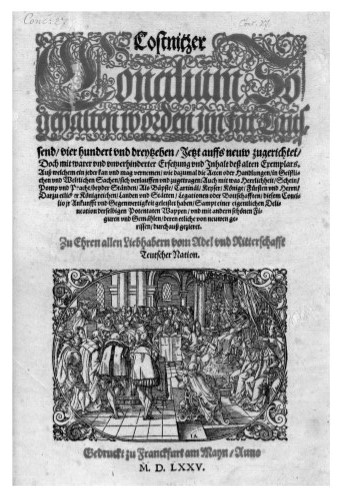 Conc. 27.
Conc. 27.
Costnitzer
Concilium/ So
gehalten worden im jar Tau-
send/ vier hundert und dreytzehen/ Jetzt auffs neuw zugerichtet/
Doch mit warer und unverhinderter Ersetzung und Inhalts deß alten Exemplars,
Auß welchem ein jeder kan und mag vernemen/ wie dazumal die Acten oder Handlungen/ in Geistli-
chen und Weltlichen Sachen/ sich verlauffen und zugetragen: Auch mit was Herrlichkeit/ Schein/
Pomp und Pracht/ beyder Ständen/ Als Bäpste/ Cardinäl/ Keyser/ Könige/ Fürsten und Herrn/
Dazu etlicher Königreichen/ Landen und Stätten/ Legationen oder Bottschafften/ diesem Conci-
lio jr Ankunfft und Gegenwertigkeit geleistet haben/ Sampt einer eigentlichen Deli-
neation derselbigen Potentaten Wappen/ und mit andern schönen Fi-
guren und Gemählen/ deren etliche von neuwen ge-
rissen/ durchauß gezieret.
Zu Ehren allen Liebhabern vom Adel und Ritterschafft
Teutscher Nation.
IA
Gedruckt zu Franckfurt am Mayn/ Anno
M. D. LXXV.